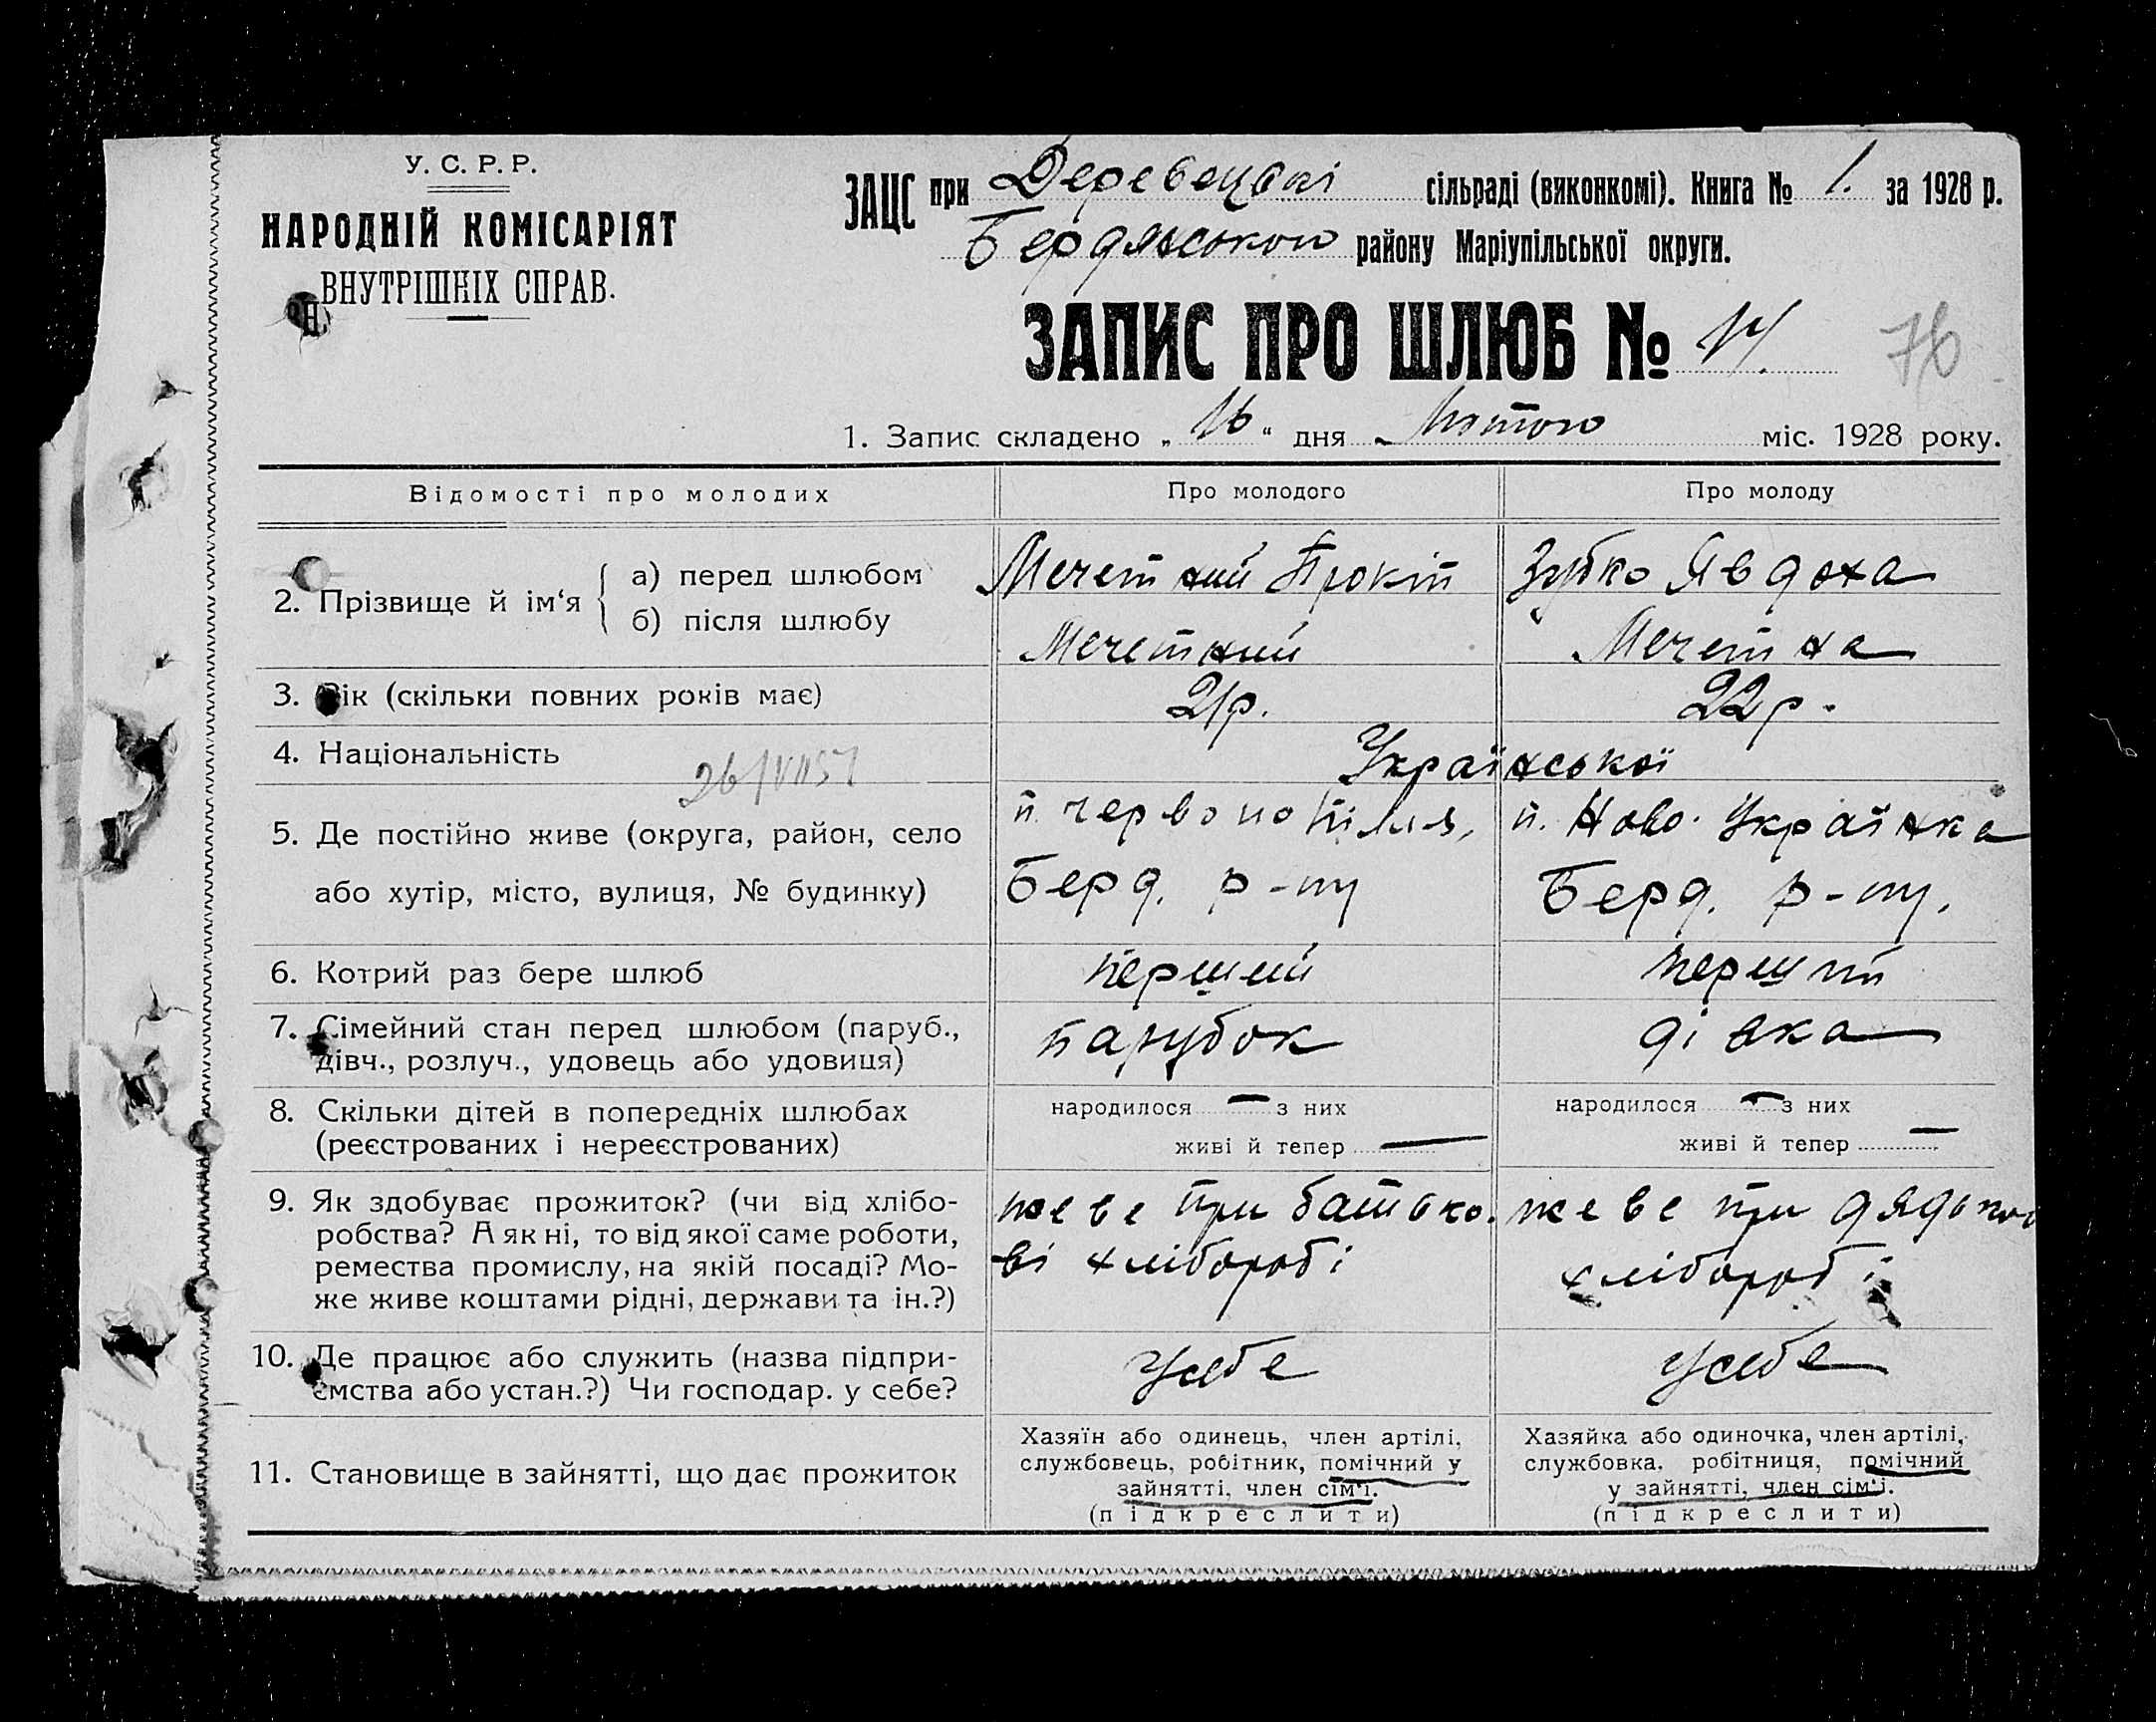 У. С. Р. Р.
НАРОДНІЙ КОМІСАРІЯТ
ВНУТРІШНІХ СПРАВ.
ЗАЦС при Деревецькі сільраді (виконкомі). Книга № 1. за 1928 р.
Бердянського району Маріупільської округи.
ЗАПИС ПРО ШЛЮБ № 14. 76
1. Запис складено „ 16 “ дня Лютого міс. 1928 року.
Відомості про молодих Про молодого Про молоду
2. Прізвище й ім‘я а) перед шлюбом Мечетний Прокіп Зубко Явдоха
б) після шлюбу Мечетний Мечетна
3. Вік (скільки повних років має) 21р. 22р.
4. Національність Української
26/VII 51
5. Де постійно живе (округа, район, село п. Червонопілля, п. Ново-Українка
або хутір, місто, вулиця, № будинку) Берд. р-ну Берд. р-ну.
6. Котрий раз бере шлюб перший перший
7. Сімейний стан перед шлюбом (паруб., парубок дівка
дівч., розлуч., удовець або удовиця)
8. Скільки дітей в попередніх шлюбах народилося — з них народилося — з них
(реєстрованих і нереєстрованих) живі й тепер — живі й тепер —
9. Як здобуває прожиток? (чи від хлібо- живе при батько- живе при дядькові
робства? А як ні, то від якої саме роботи, ві хлібороб і хлібороб і
ремества промислу, на якій посаді? Мо-
же живе коштами рідні, держави та ін.?)
10. Де працює або служить (назва підпри- У себе У себе
ємства або устан.?) Чи господар. у себе?
11. Становище в зайнятті, що дає прожиток
Хазяїн або одинець, член артілі,
службовець, робітник, помічний у
зайнятті, член сім‘ї.
(підкреслити)
Хазяйка або одиночка, член артілі,
службовка, робітниця, помічний
у зайнятті, член сім‘ї.
(підкреслити)